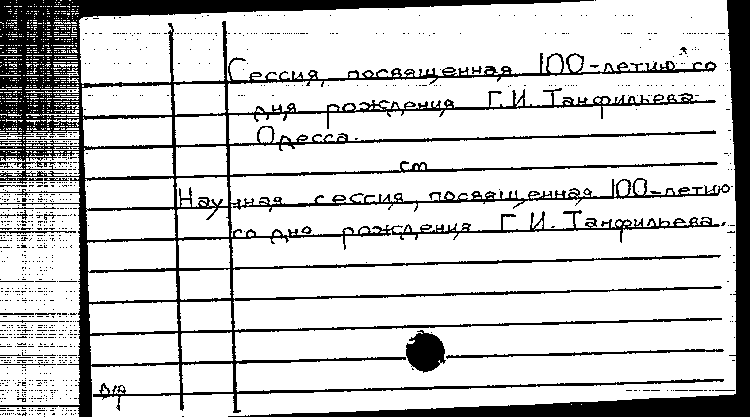 Сессия, посвященная 100-летию со
дня рождения Г.И. Танфильева
Одесса.
см
Научная сессия, посвященная 100-летию
со дня рождения Г.И. Танфильева.